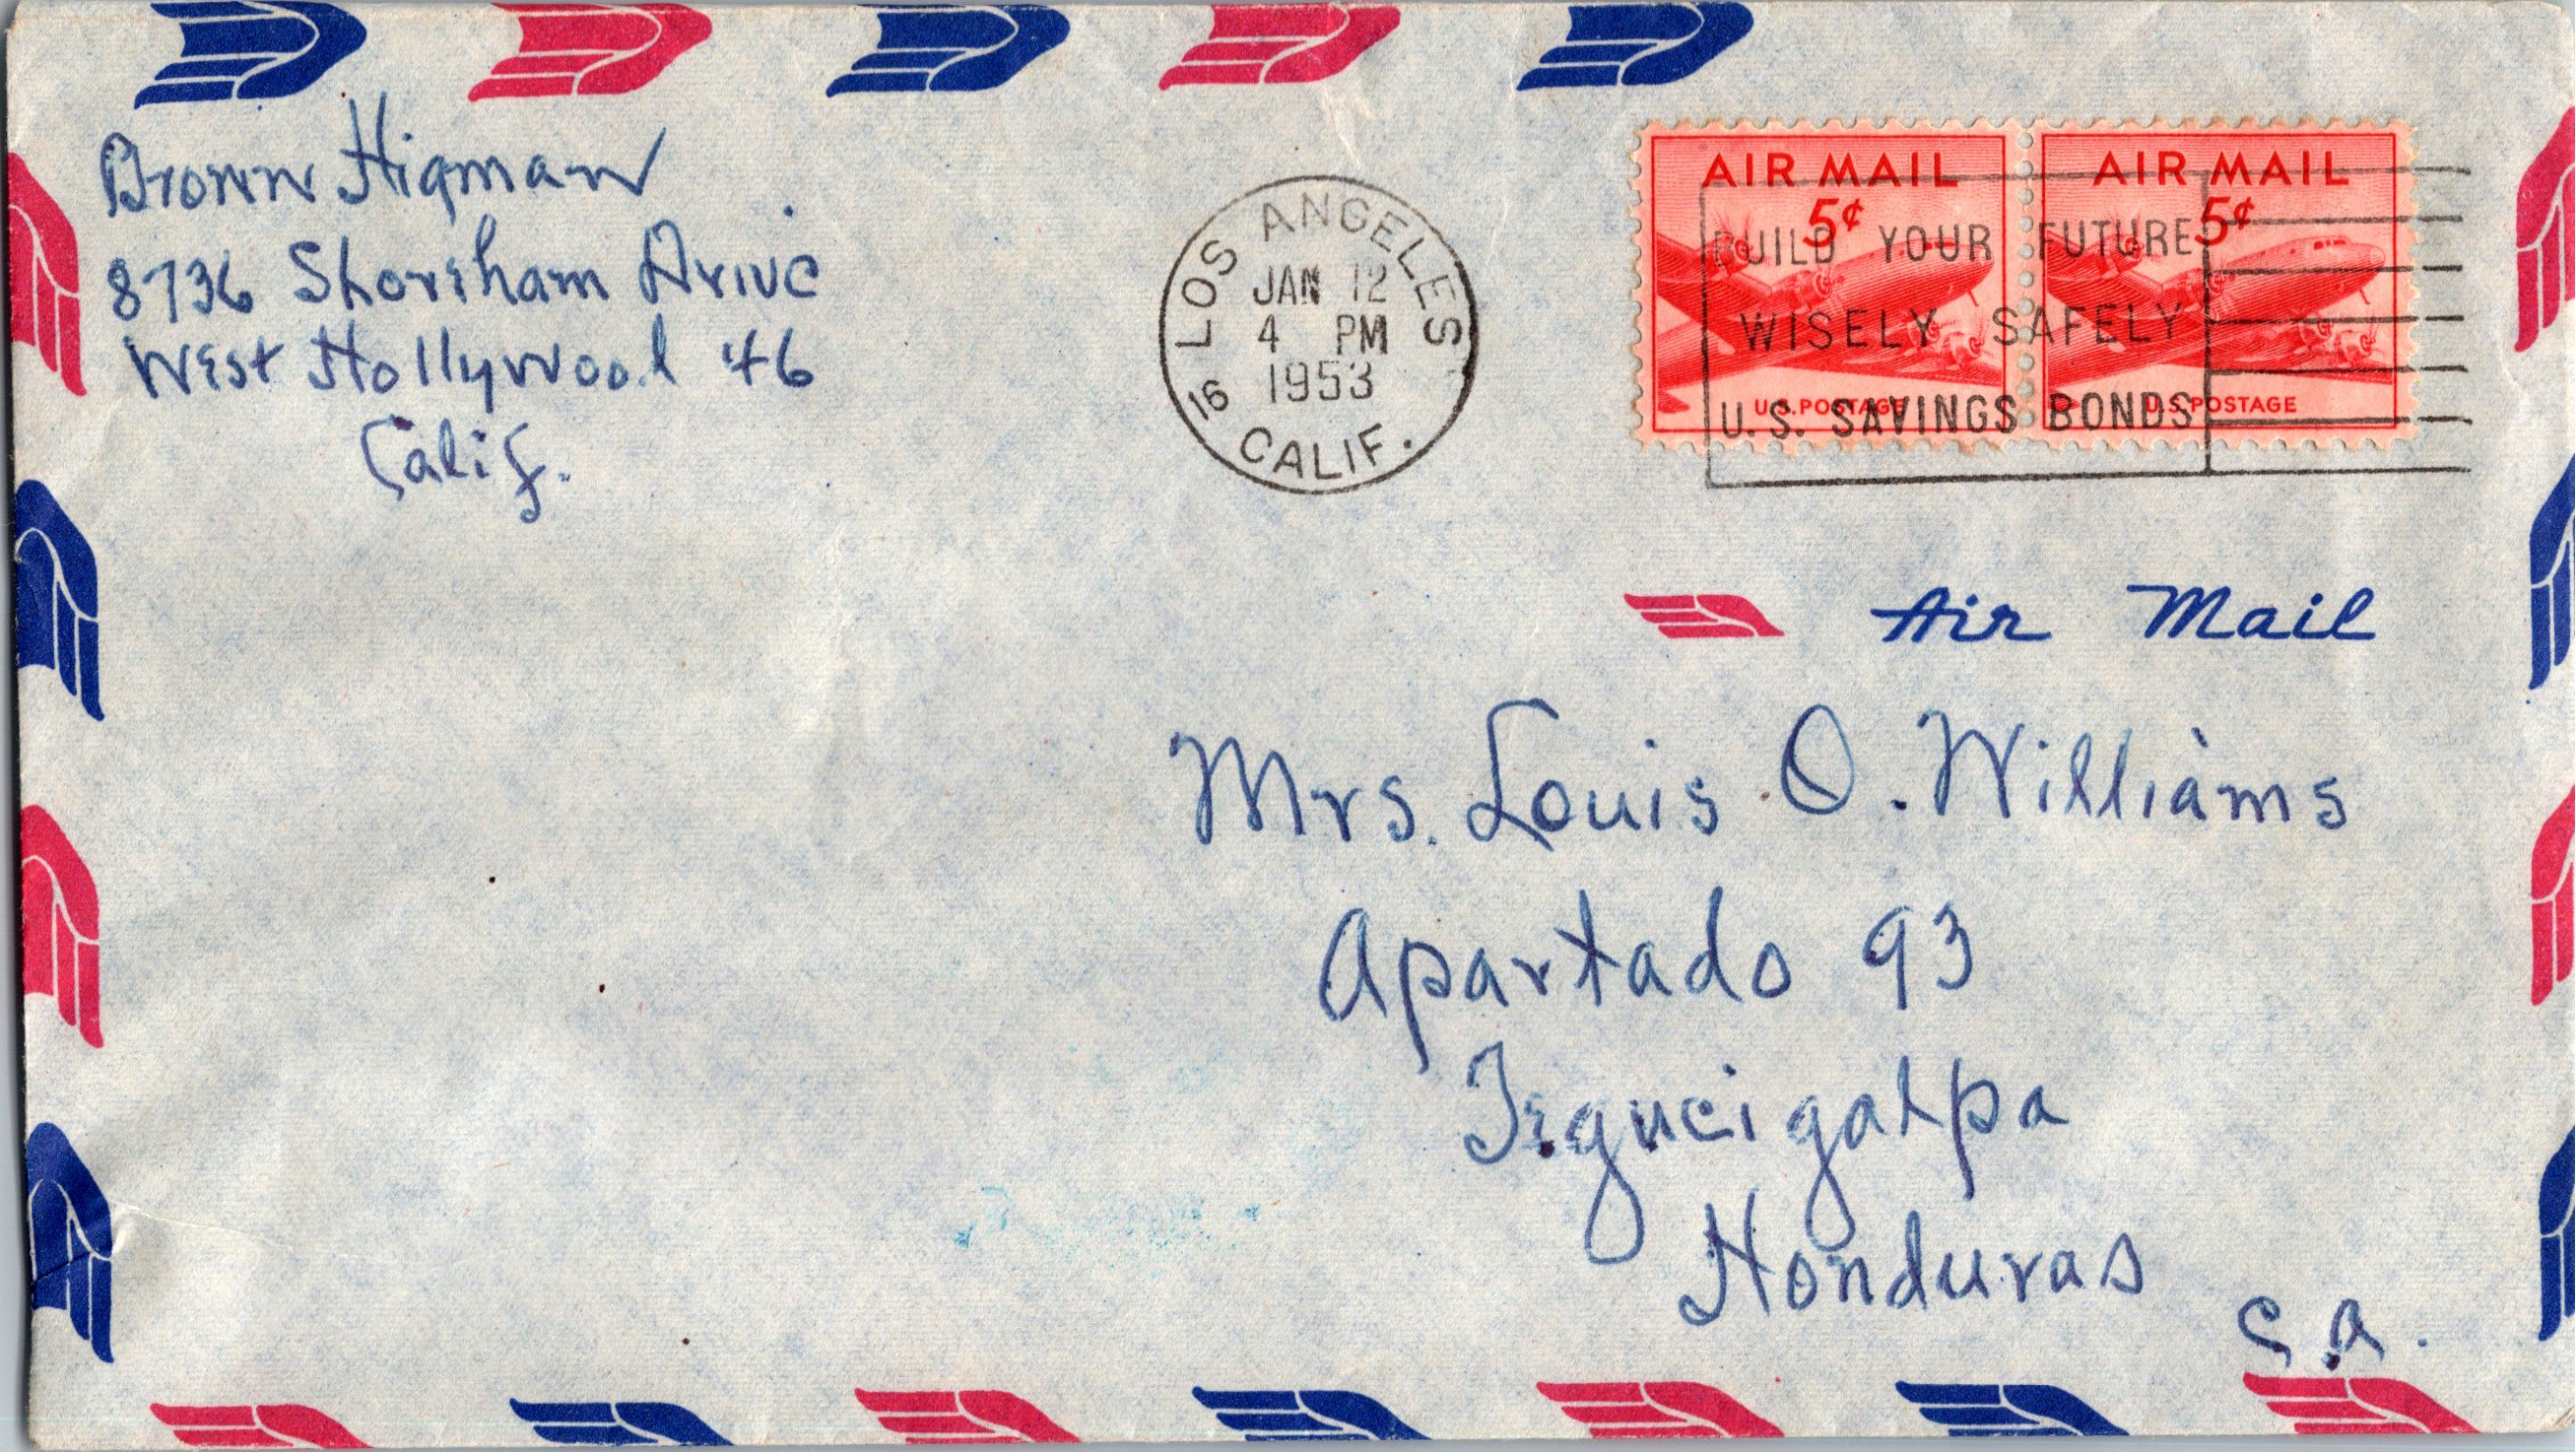 Brown Higman
8736 Shoreham Drive
West Hollywood 46
Calif.
LOS ANGELES
JAN 12
4 PM
1953
16
CALIF.
AIR MAIL
5¢
U.S. POSTAGE
AIR MAIL
5¢
U.S. POSTAGE
BUILD YOUR FUTURE
WISELY SAFELY
U.S. SAVINGS BONDS
Air Mail
Mrs. Louis O. Williams
Apartado 93
Tegucigalpa
Honduras
C.A.